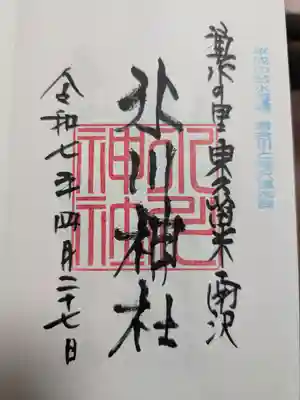 湧水の里東久留米南沢
氷川神社
氷川神社
令和七年四月二十七日